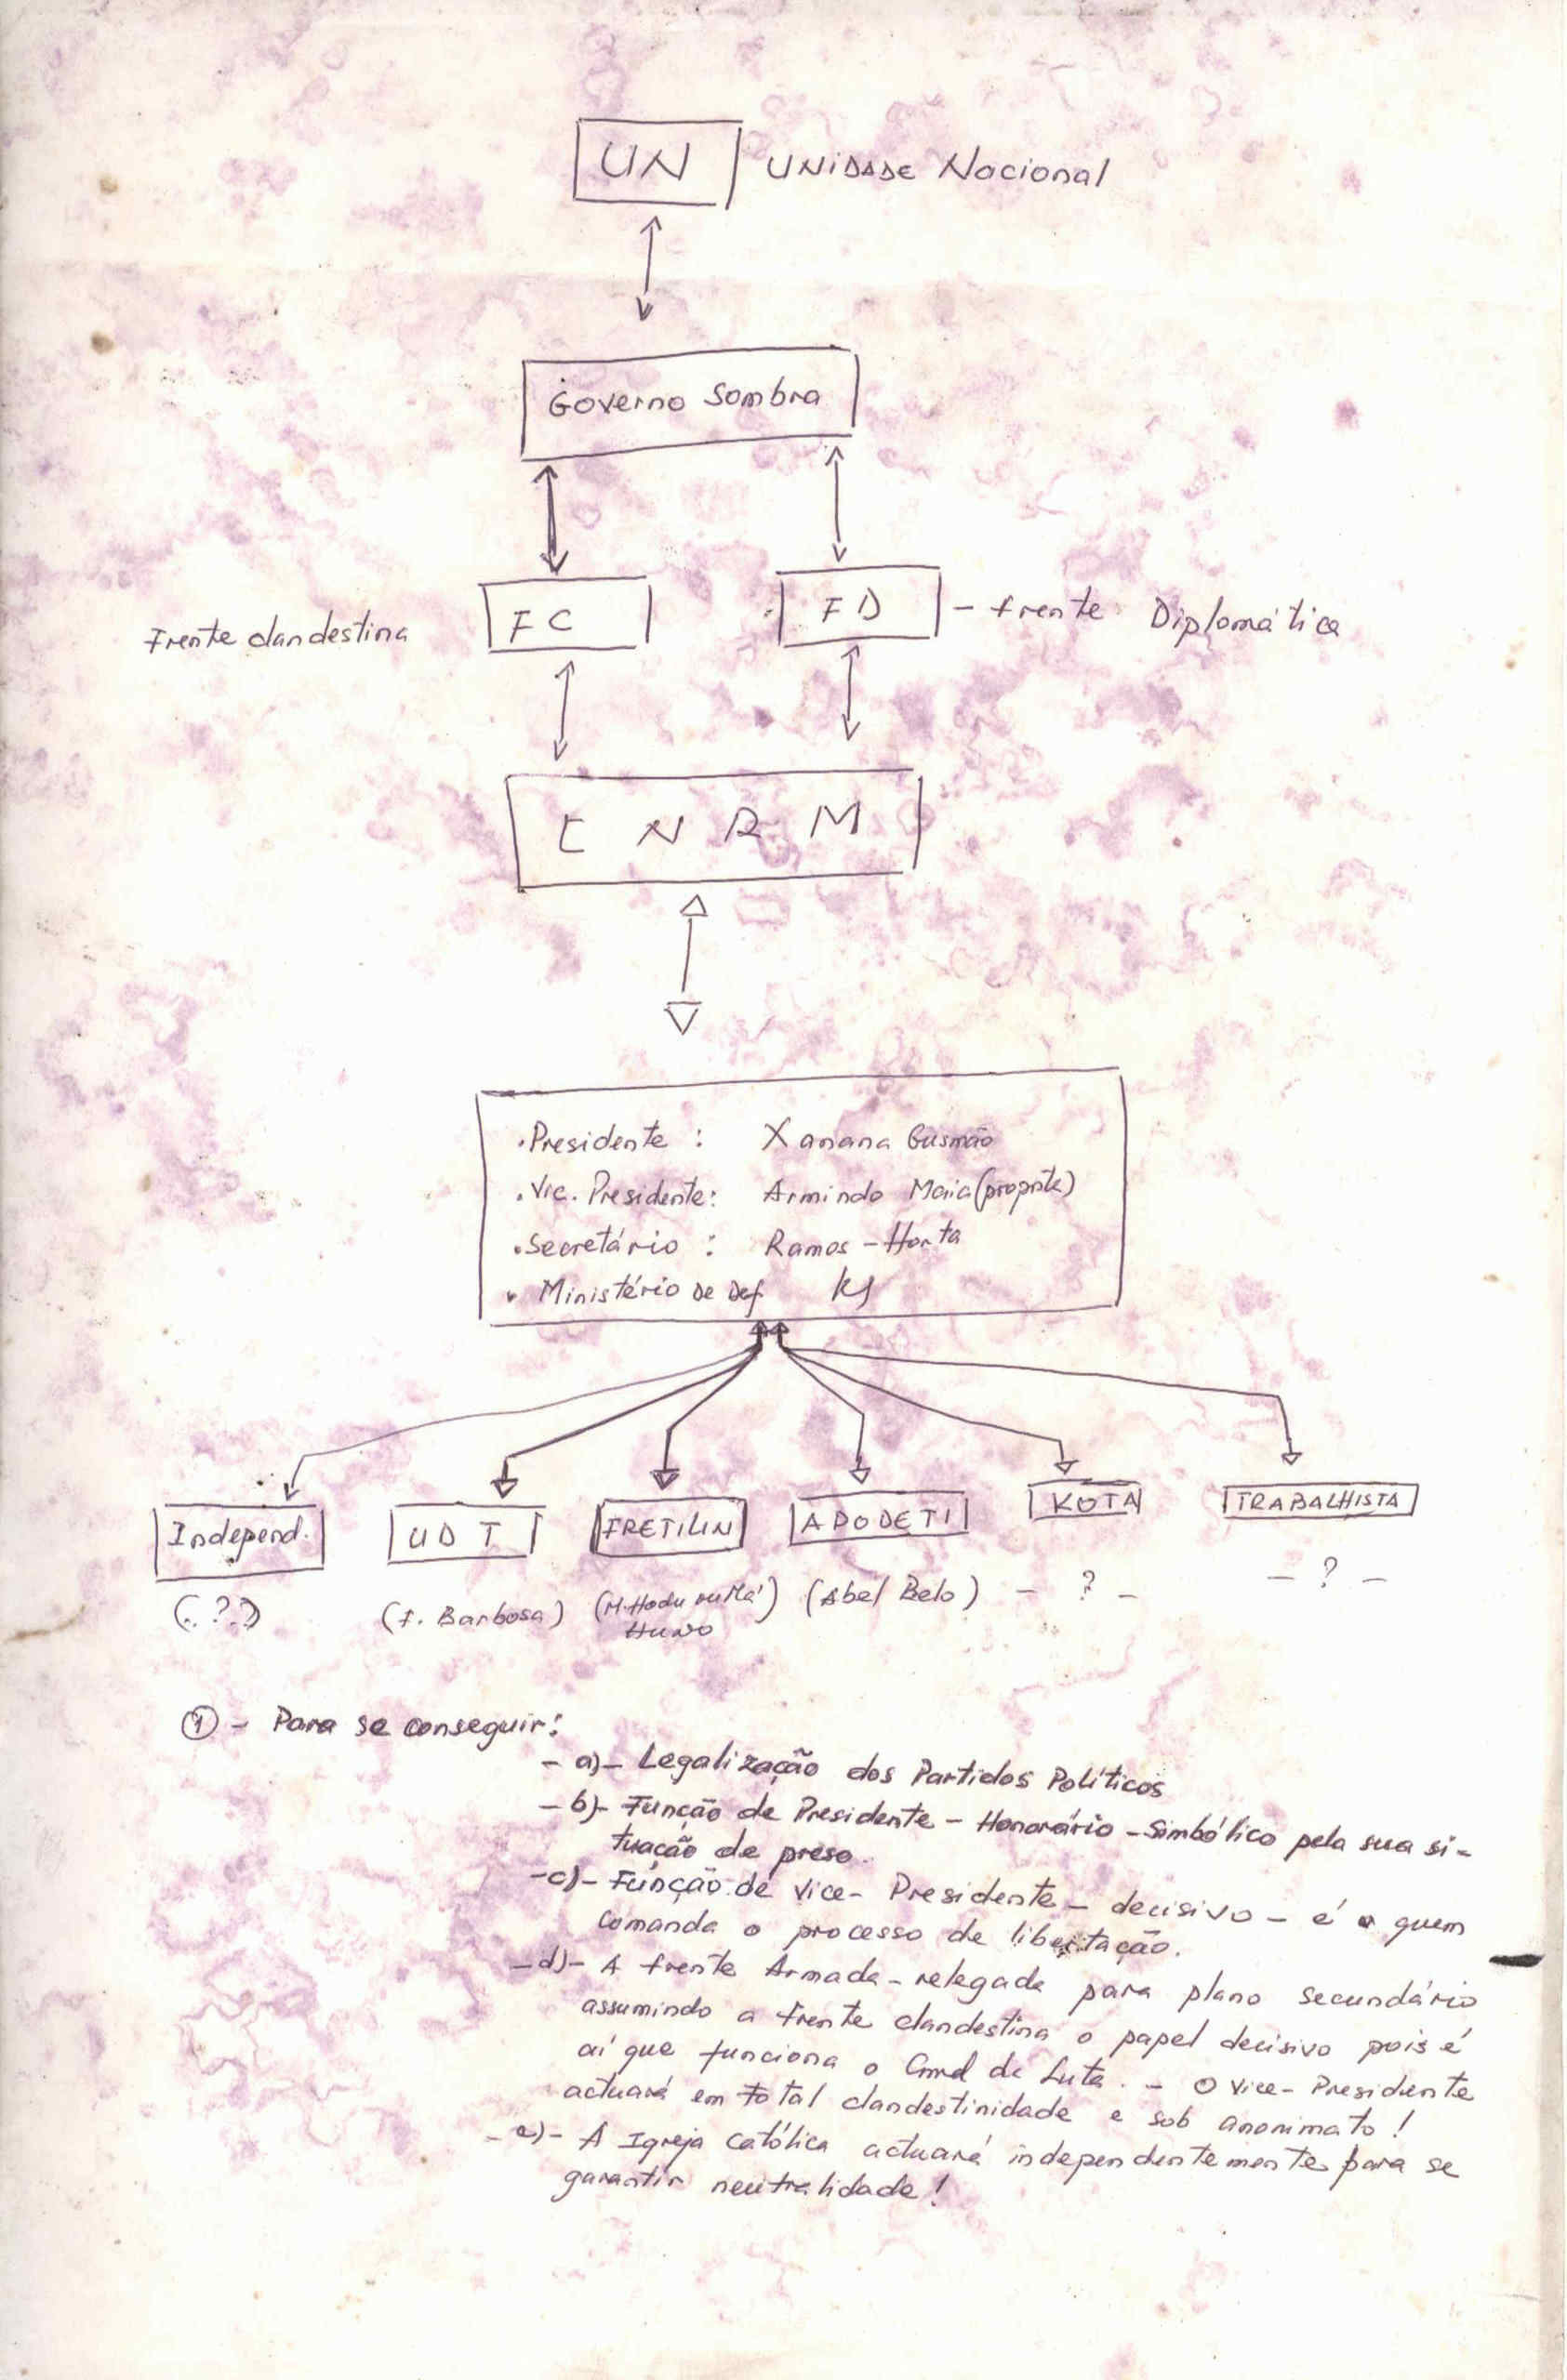 UN UNIDADE Nacional
Governo Sombra
Frente clandestina FC FD - frente Diplomática
C N R M
. Presidente : Xanana Gusmão
. Vic. Presidente: Armindo Maia (proprite)
. Secretário : Ramos - Horta
. Ministério de Def KS
Independ. UDT FRETILIN APODETI KOTA TRABALHISTA
(. ? .) (F. Barbosa) (M. Hodu ou Má' (Abel Belo) - ? - - ? -
HUNO
① - Para se conseguir:
- a) - Legalização dos Partidos Políticos
- b) - Função de Presidente - Honorário - Simbólico pela sua si-
tuação de preso.
- c) - Função de Vice - Presidente - decisivo - é quem
comanda o processo de libertação.
- d) - A frente Armada - relegada para plano secundário
assumindo a frente clandestina o papel decisivo pois é
aí que funciona o Cmd da Luta. - O Vice - Presidente
actuará em total clandestinidade e sob anonimato!
- e) - A Igreja Católica actuará independentemente para se
garantir neutralidade!